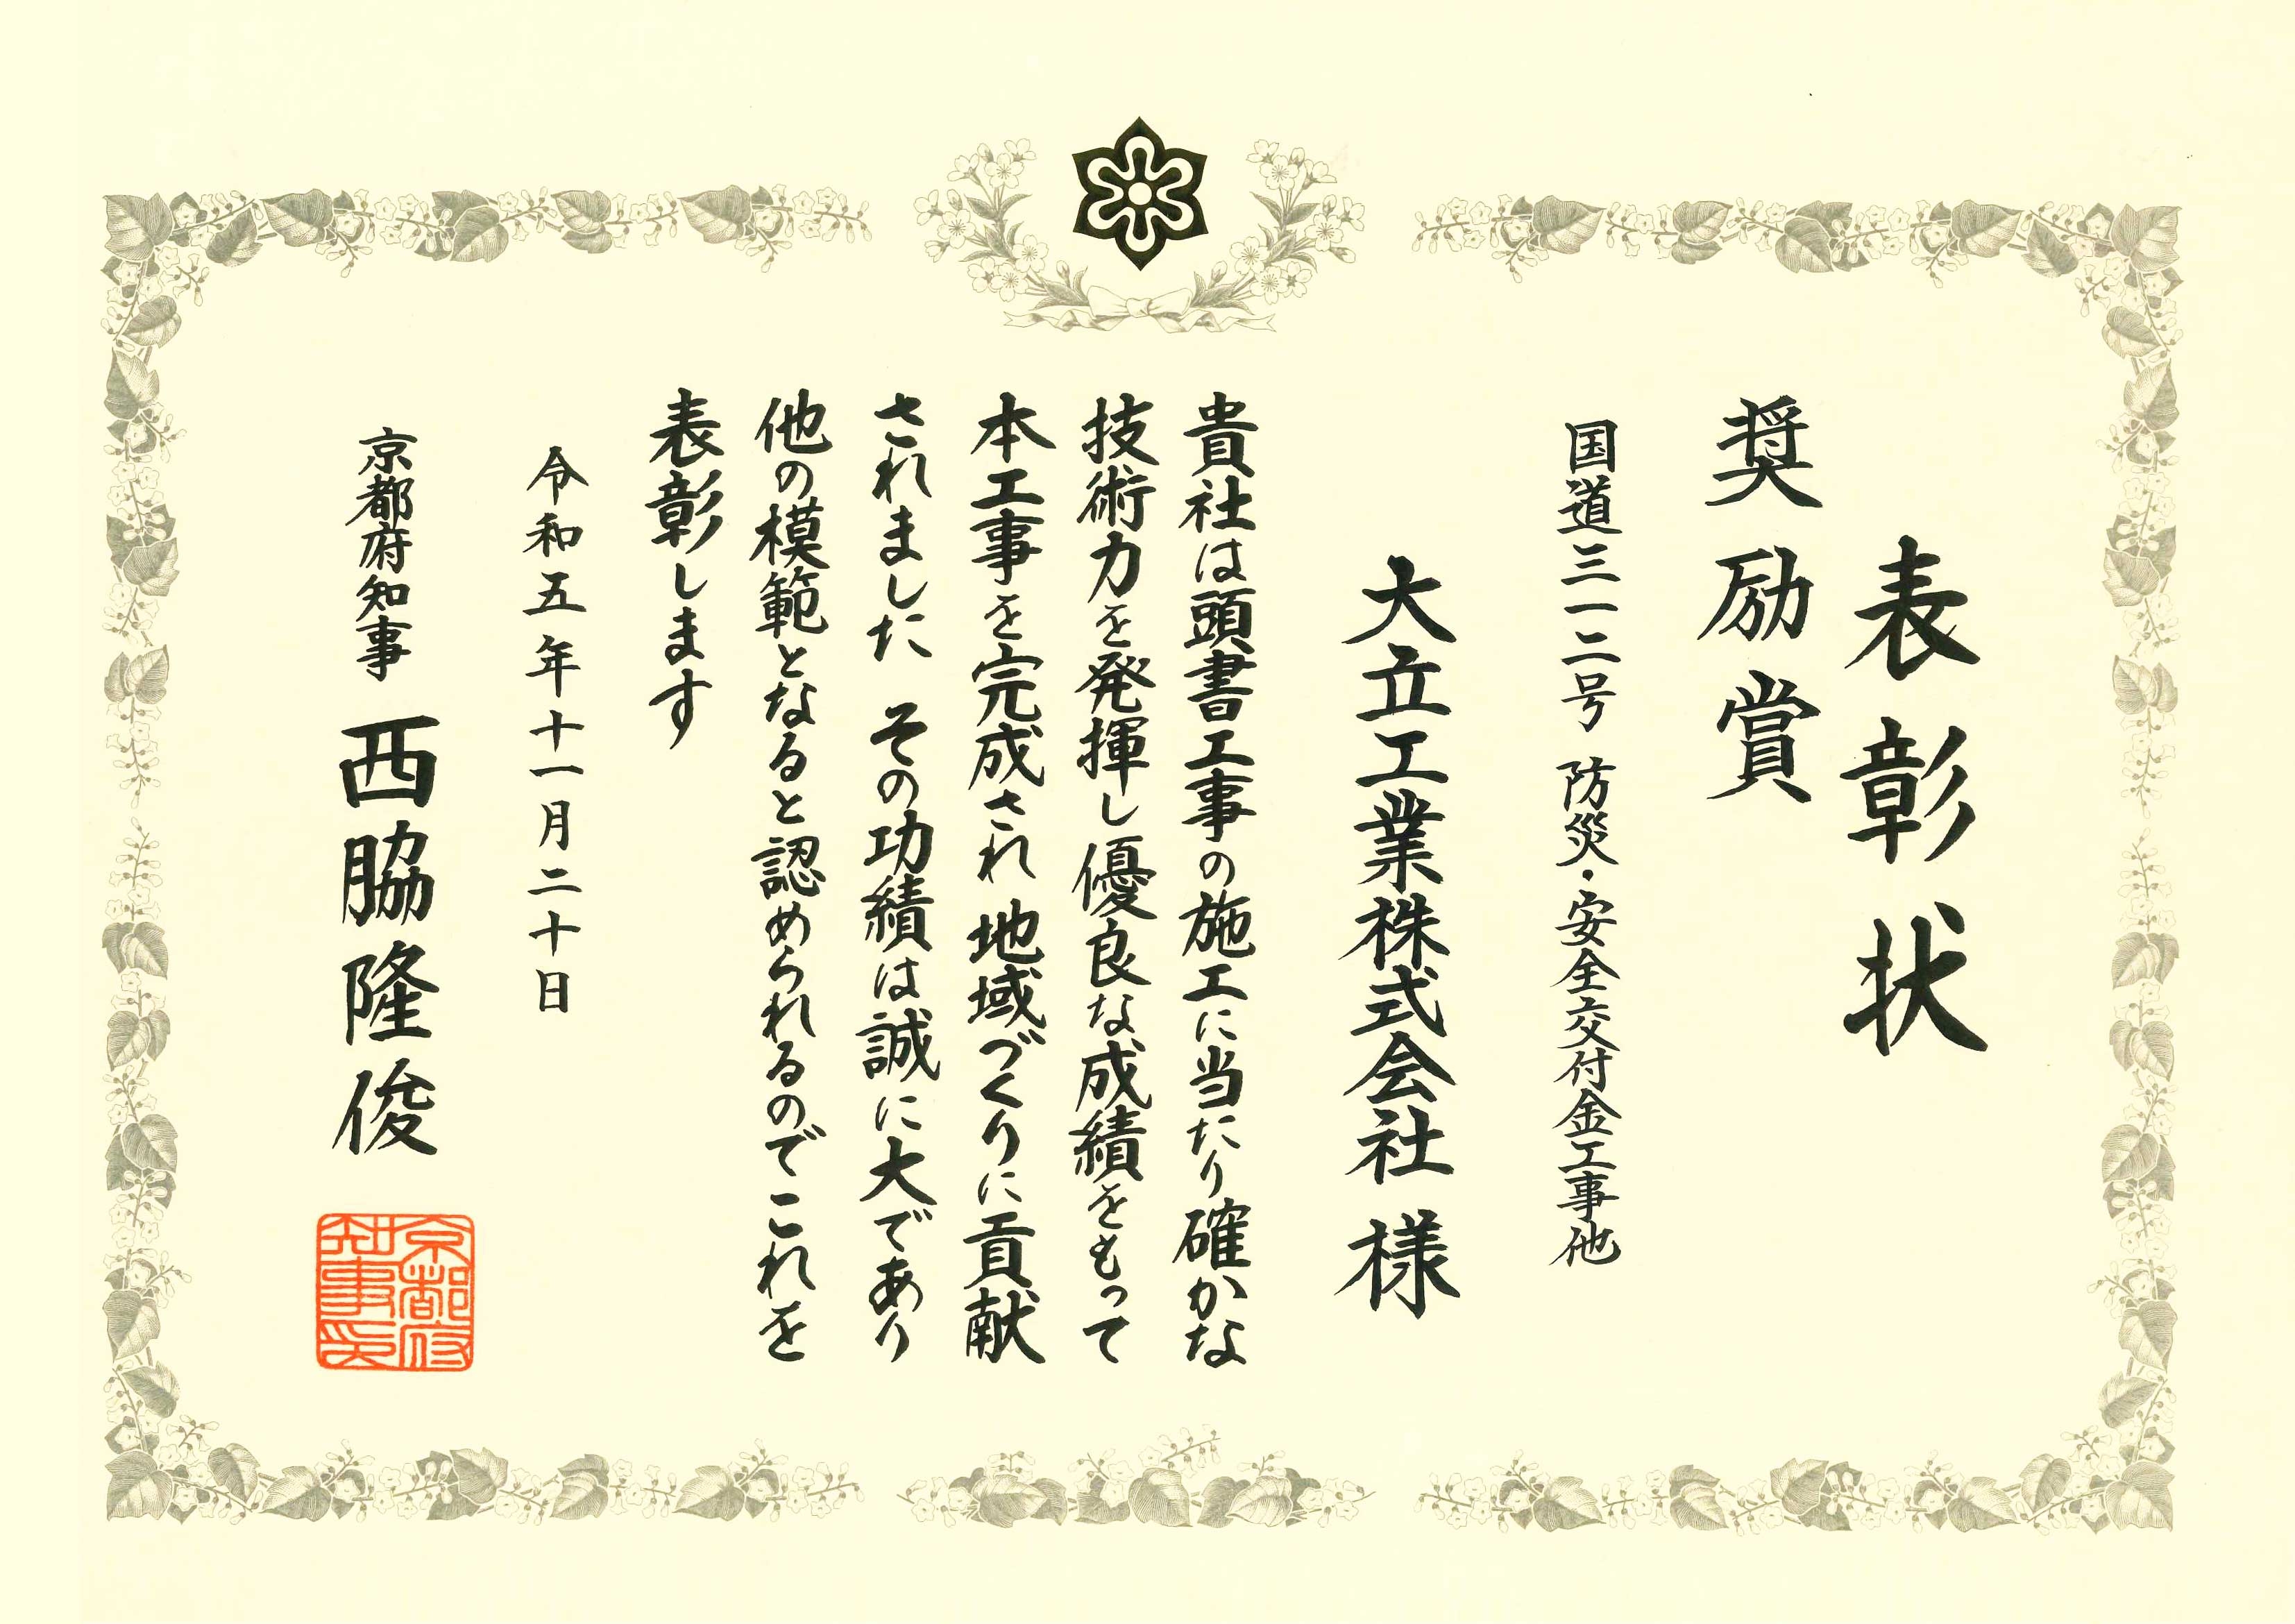 表彰状
奨励賞
国道三一二号 防災・安全交付金工事他
大立工業株式会社 様
貴社は頭書工事の施工に当たり確かな
技術力を発揮し優良な成績をもって
本工事を完成され 地域づくりに貢献
されました その功績は誠に大であり
他の模範となると認められるのでこれを
表彰します
令和五年十一月二十日
京都府知事 西脇隆俊
京都府
知事印